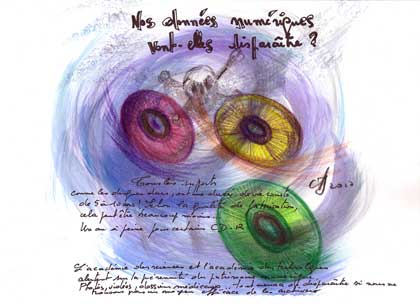 Nos données numériques
vont-elles disparaître ?
2010
Tous les supports
comme les disques durs, ont une durée de vie limitée
de 5 à 10 ans ! Selon la qualité de fabrication,
cela peut être beaucoup moins.
Un an à peine pour certains CD-R
L'académie des sciences et l'académie des technologies
alertent sur la pérennité du patrimoine numérique
Photos, vidéos, dossiers médicaux... Tout menace de disparaître si nous ne
trouvons pas un moyen efficace de les archiver